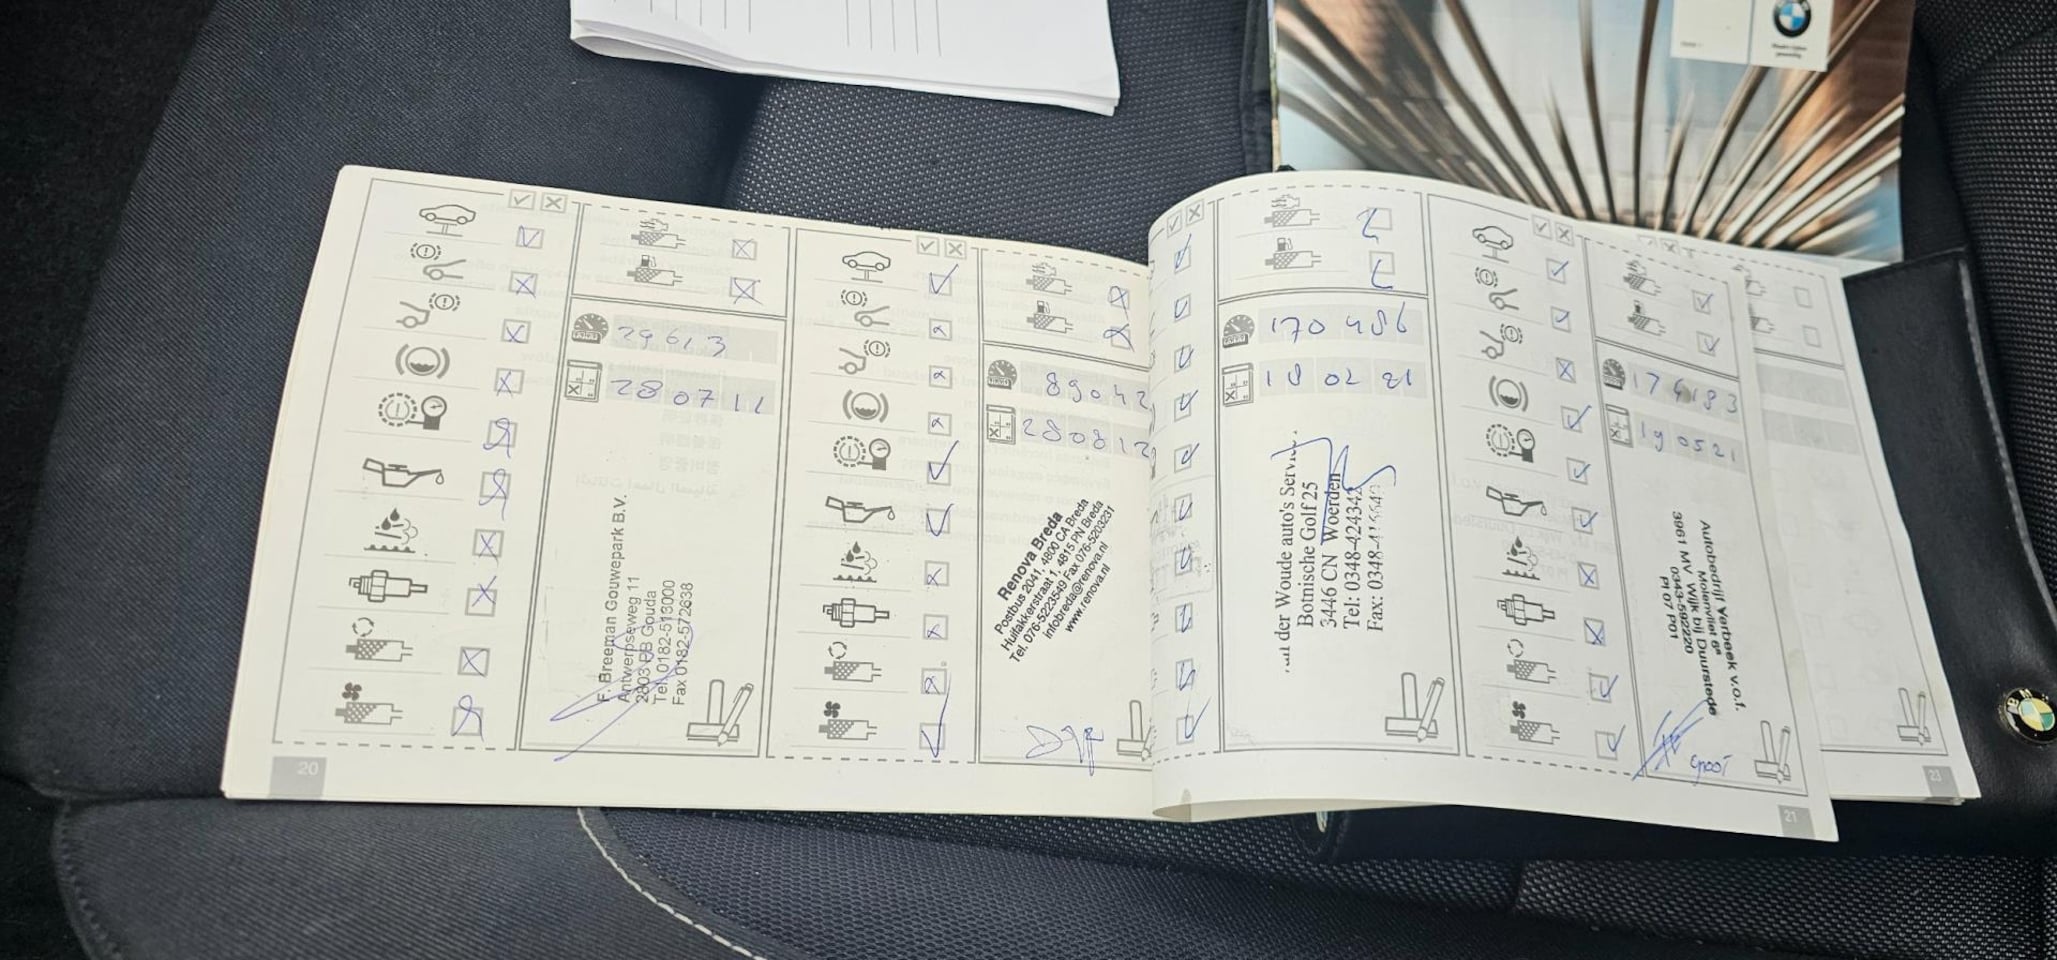 29613
28 07 11
F. Breeman Gouwepark B.V.
Antwerpseweg 11
2803 PB Gouda
Tel. 0182-513000
Fax 0182-572638
20
89042
280812
Renova Breda
Postbus 2041, 4800 CA Breda
Huifakkerstraat 1, 4815 PN Breda
Tel. 076-5223549 Fax 076-5203231
infobreda@renova.nl
www.renova.nl
170 486
18 02 21
der Woude auto's
Botnische Golf 25
3446 CN Woerden
Tel: 0348-424342
Fax:
174183
19 05 21
Autobedrijf Verbeek v.o.f.
Molenvliet 6ª
3961 MV Wijk bij Duurstede
0343-592220
Pl 07 P01
21
23